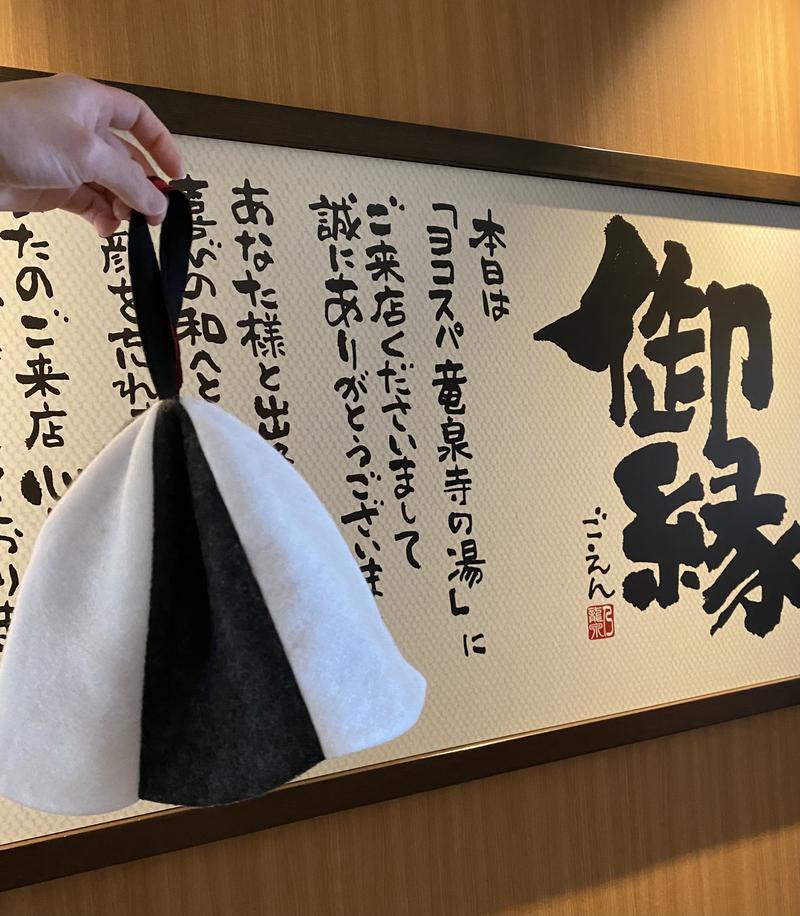 御縁
ご・えん
本日は
「ヨコスパ竜泉寺の湯」に
ご来店くださいまして
誠にありがとうございま
あなた様と出
の和へと
顔を忘れ
たのご来店